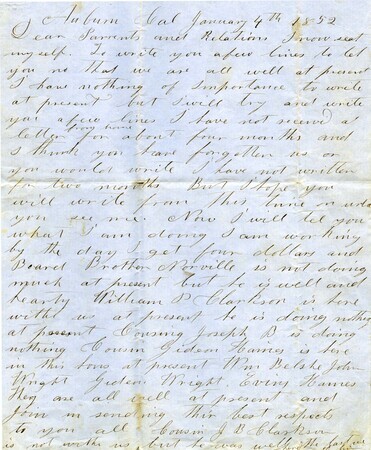 Auburn Cal January 4th 1852
Dear Parents and Relations I now seat
myself. To write you a few lines to let
you no that we are all well at present
I have nothing of Importance to write
at present but I will try and write
you a few lines I have not received a
letter from home for about four months and
I think you have forgotten us or
you would write I have not written
for two months But I hope you
will write from this time on
you see me. Now I will tell you
what I am doing I am working
by the day I get four dollars and
Board Brother Norville is not doing
much at present but he is well and
hearty William P Clarkson is here
withe us at present he is doing nothing
at present Cousing Joseph B is doing
nothing Cousin Gideon Haines is here
in this town at present Wm Belshe John
Wright Gideon Wright. Haines
They are all well at present and
join in sending their best respects
to you all Cousin J B Clarkson
is not withe us, but he was well